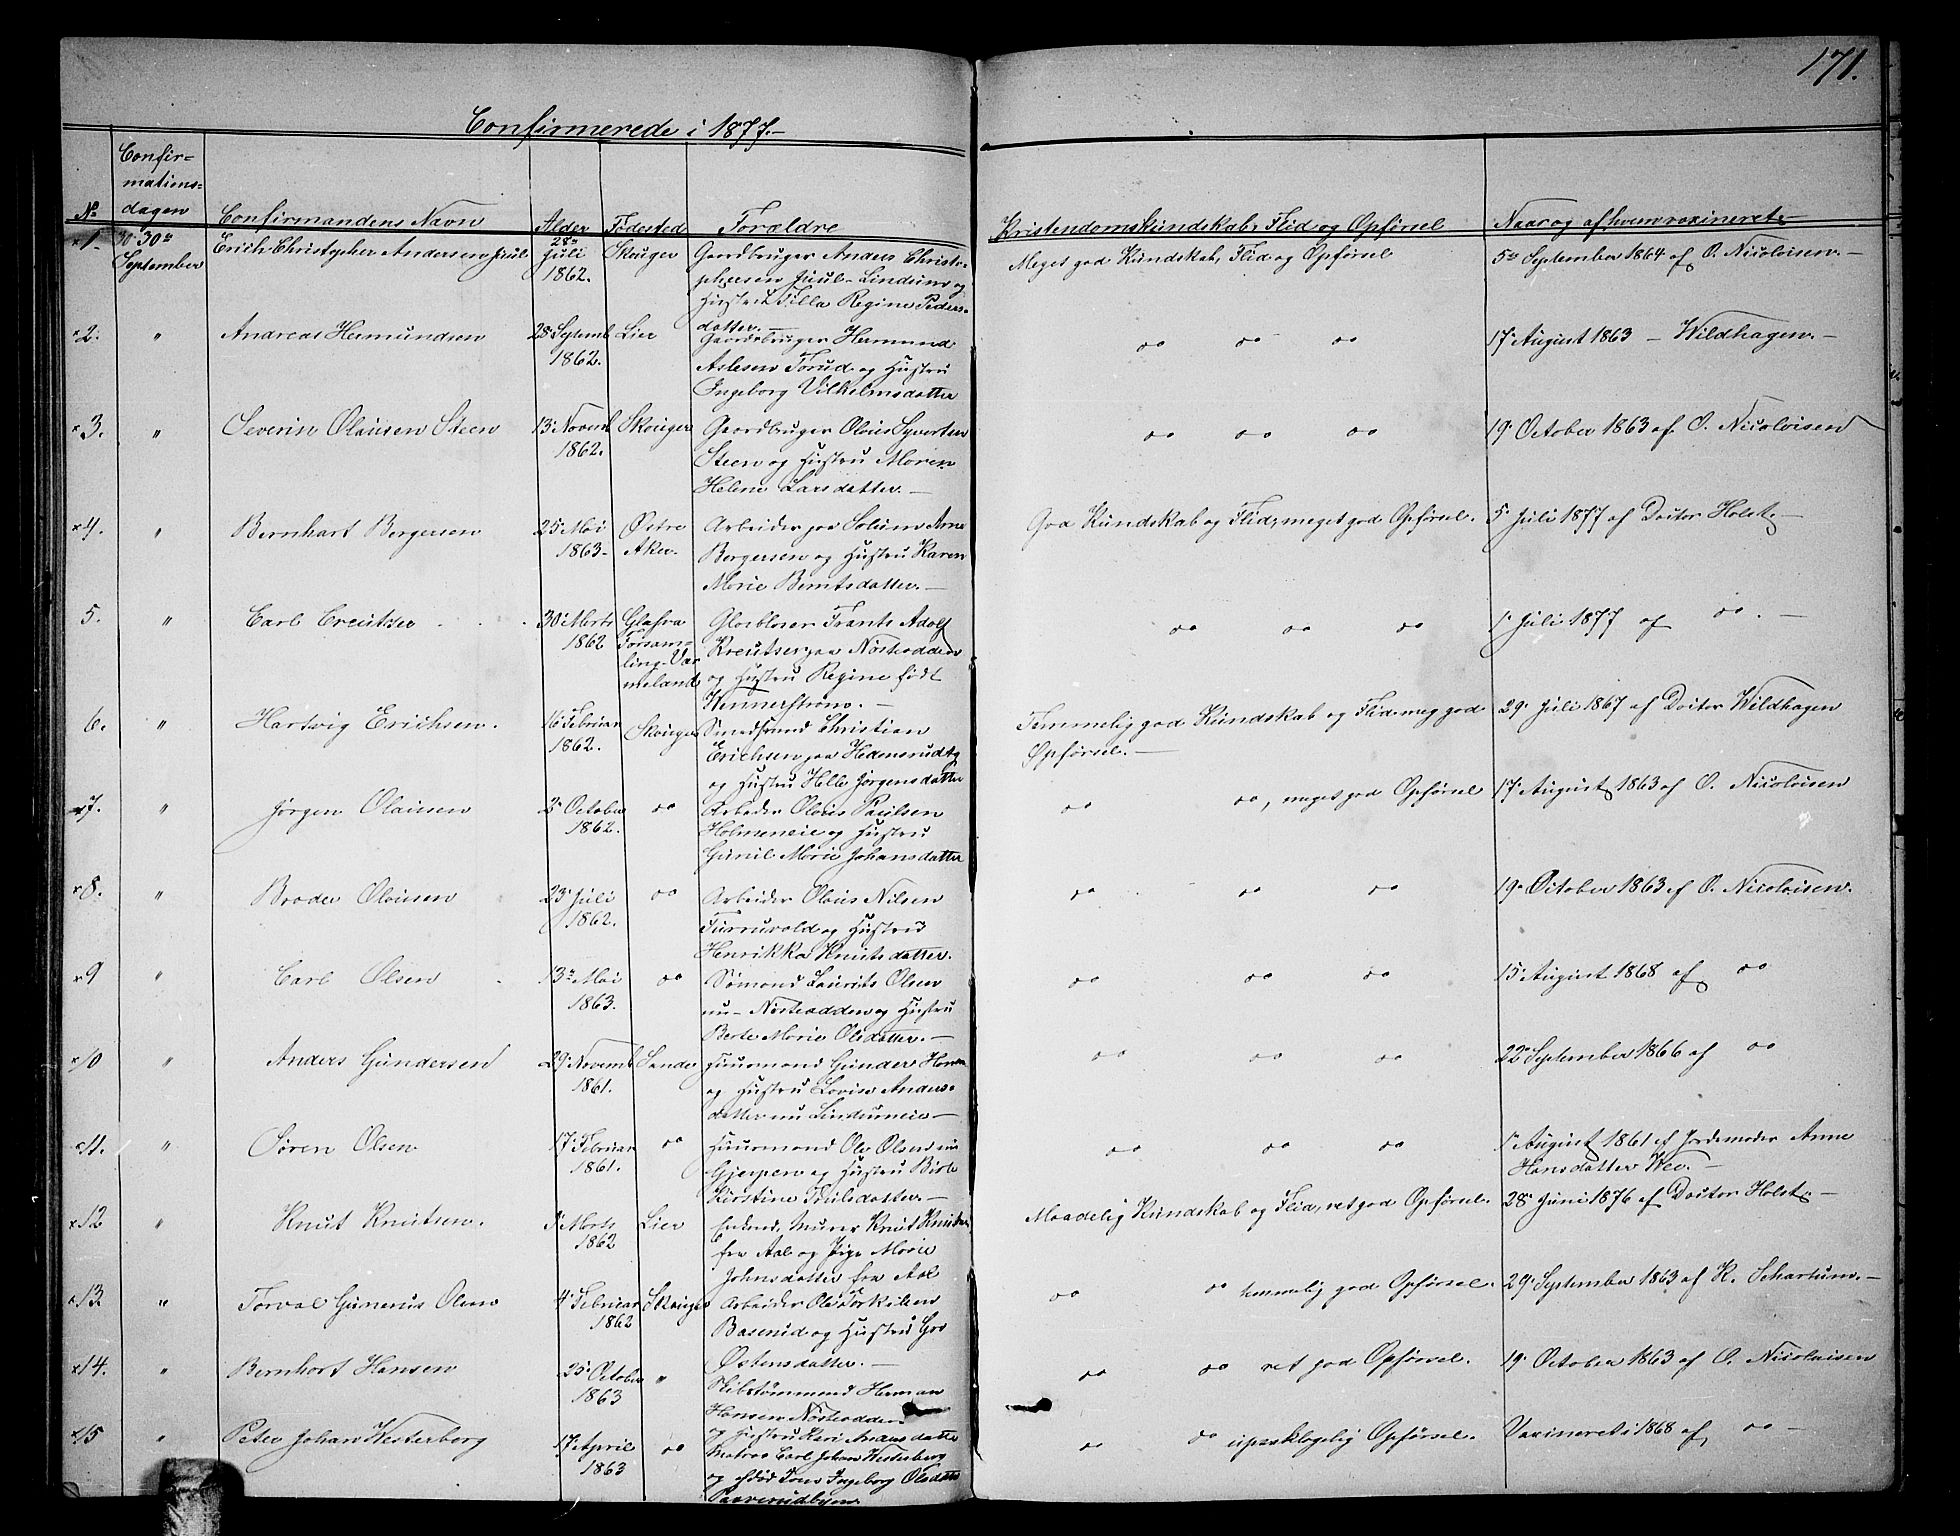 171.
Confirmerede i 1877.-
No
Confir-
mations-
dagen
Confirmandens Navn
Alder
Fødested
Forældre
Kristendomskundskab, Flid og Opførsel
Naar og af hvem vaxineret
1. 30te September
Erich Christopher Andersen Juul
28de Juli 1862.
Skouger
Gaardbruger Anders Christo-
phersen Juul Lindum og
Hustru Silla Regine Peders-
datter.
Meget god Kundskab, Flid og Opførsel
5te September 1864 af O. Nicolaisen.
2. "
Andreas Hermundsen
28 Septemb 1862.
Lier
Gaardbruger Hermund
Aslesen Torud og Hustru
Ingeborg Vilhelmsdatter
do do do
17 August 1863 - Wildhagen.
3. "
Severin Olausen Steen
13 Novemb 1862.
Skouger
Gaardbruger Olaus Syvertsen
Steen og Hustru Maren
Helene Larsdatter.
do do do
19 October 1863 af O. Nicolaisen
4. "
Bernhart Bergersen
25 Mai 1863
Østre Aker
Arbeider paa Solum Arne
Bergersen og Hustru Karen
Marie Berntsdatter.
God Kundskab og Flid, meget god Opførsel.
5 Juli 1877 af Doctor Holst
5. "
Carl Creutser
30 Marts 1862
Glafva
Forsam-
ling Var
meland
Glasblaser Frants Adolf
Kreutser paa Nøsteodden
og Hustru Regine født
Kennerstrøm.
do do do
1 Juli 1877 af do.
6. "
Hartvig Erichsen.
16 Februar 1862.
Skouger
Smedsvend Christian
Erichsen paa Hedensrud
og Hustru Helle Jørgensdatter
Temmelig god Kundskab og Flid, meg god
Opførsel.
29 Juli 1867 af Doctor Wildhagen
7. "
Jørgen Olausen
2 October 1862.
do
Arbeider Olaus Paulsen
Holmeneie og Hustru
Gunil Marie Johansdatter
do do, meget god Opførsel
17 August 1863 af O. Nicolaisen
8. "
Broder Olausen
23 Juli 1862.
do
Arbeider Olaus Nilsen
Furruvold og Hustru
Henrikka Knutsdatter.
do do do
19 October 1863 af O. Nicolaisen.
9 "
Carl Olsen
13de Mai 1863.
do
Sømand Laurits Olsen
nu Nøsteodden og Hustru
Berte Marie Olsdatter.
do do do
15 August 1868 af do
10 "
Anders Gundersen
29 Novemb 1861.
Sande
Huusmand Gunder
og Hustru Lovise Anders-
datter nu Lindumeie
do do do
22 September 1866 af do
11. "
Søren Olsen
17 Februar 1861.
do
Huusmand Ole Olsen nu
Gjerpen og Hustru Birte
Kirstine Truls datter.
do do do
1te August 1861 af Jordemoder Anne
Hansdatter
12 "
Knut Knutsen.
1 Marts 1862
Lier
Enkemd, Murer Knut Knutsen
fra Aal og Pige Marie
Johnsdatter fra Aal
Maadelig Kundskab og Flid, ret god Opførsel.
28 Juni 1876 af Doctor Holst
13. "
Torval Gunerius Olsen
4 Februar 1862
Skouger
Arbeider Ole Torkilsen
Baserud og Hustru Gro
Østensdatter.
do do temmelig god Opførsel.
29 September 1863 af K. Schartum.
14. "
Bernhart Hansen
25 October 1863
"
Skibstømmermd Herman
Hansen Nøsteodden
og Hustru Kari Andersdatter
do do ret god Opførsel.
19 October 1863 af O. Nicolaisen
15 "
Peter Johan Westerberg
17 April 1863
do
Matros Carl Johan Westerberg
og død Kone Ingeborg Olsdatter
Paaverudbyen
do do upaaklagelig Opførsel.
Vaxineret i 1868 af do